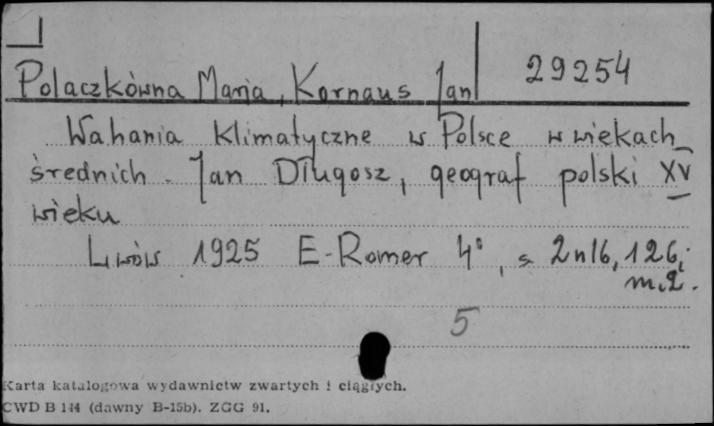 29254
Polaczkówna Maria, Kornaus Jan
Wahania klimatyczne w Polsce w wiekach
średnich. Jan Długosz, geograf polski XV
wieku
Lwów 1925 E. Romer 4°, s 2nlb, 126,
m. 2.
5
Karta katalogowa wydawnictw zwartych i ciągłych.
CWD B 144 (dawny B-15b). ZGG 91.